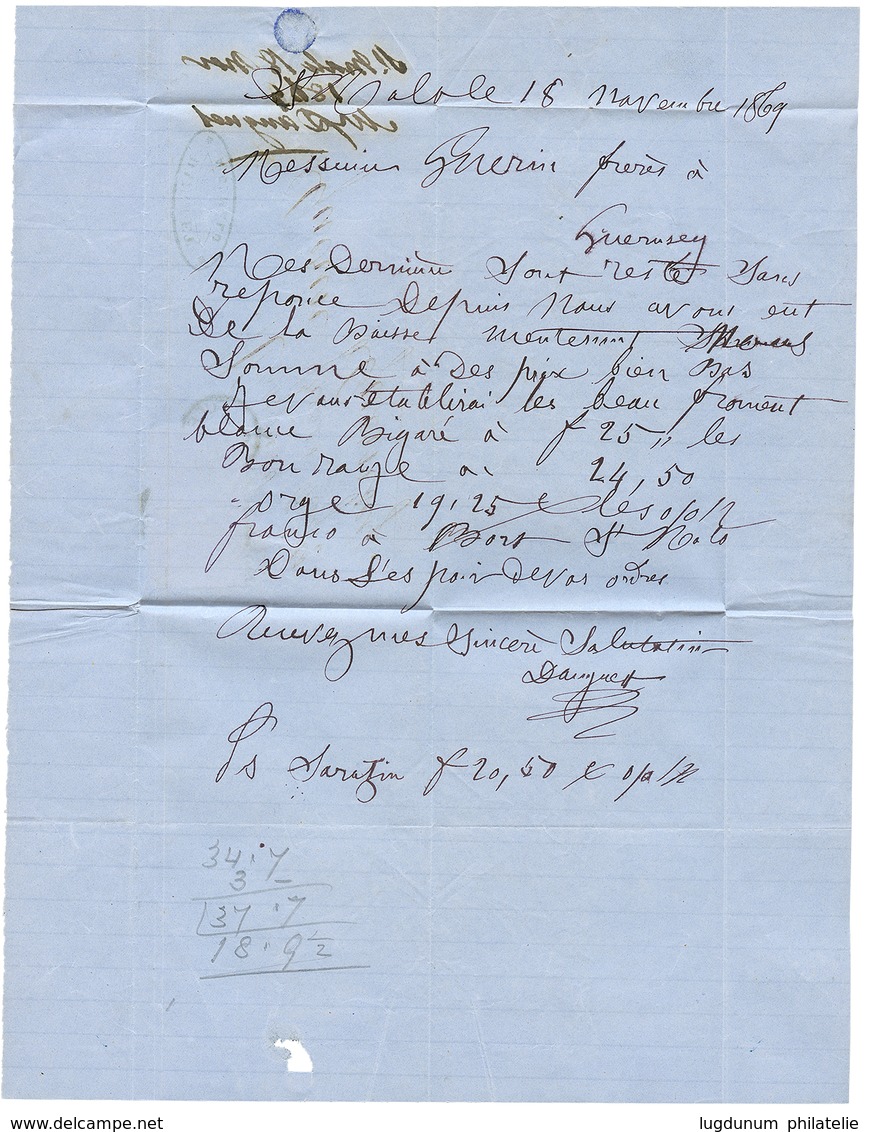 St Malo le 18 Novembre 1869
Messieurs Guerin freres à
Guernsey
Mes Dernière Sont restés Sans
reponce Depuis Nous avons eut
De la Baisse mentenant Nous
Somme à Des prix bien Bas
Je vous établirai les beau froment
blanc Bigaré à f 25 " les
Bon rouge à 24,50
orge 19,25 les o/o K
franco à Bort St Malo
Dans L'es poir de vos ordres
Recevez mes Sincere Salutation
Danguet
Ps Sarazin f 20,50 % K
34.7
3 –
37.7
18.9½
www.delcampe.net
lugdunum philatelie